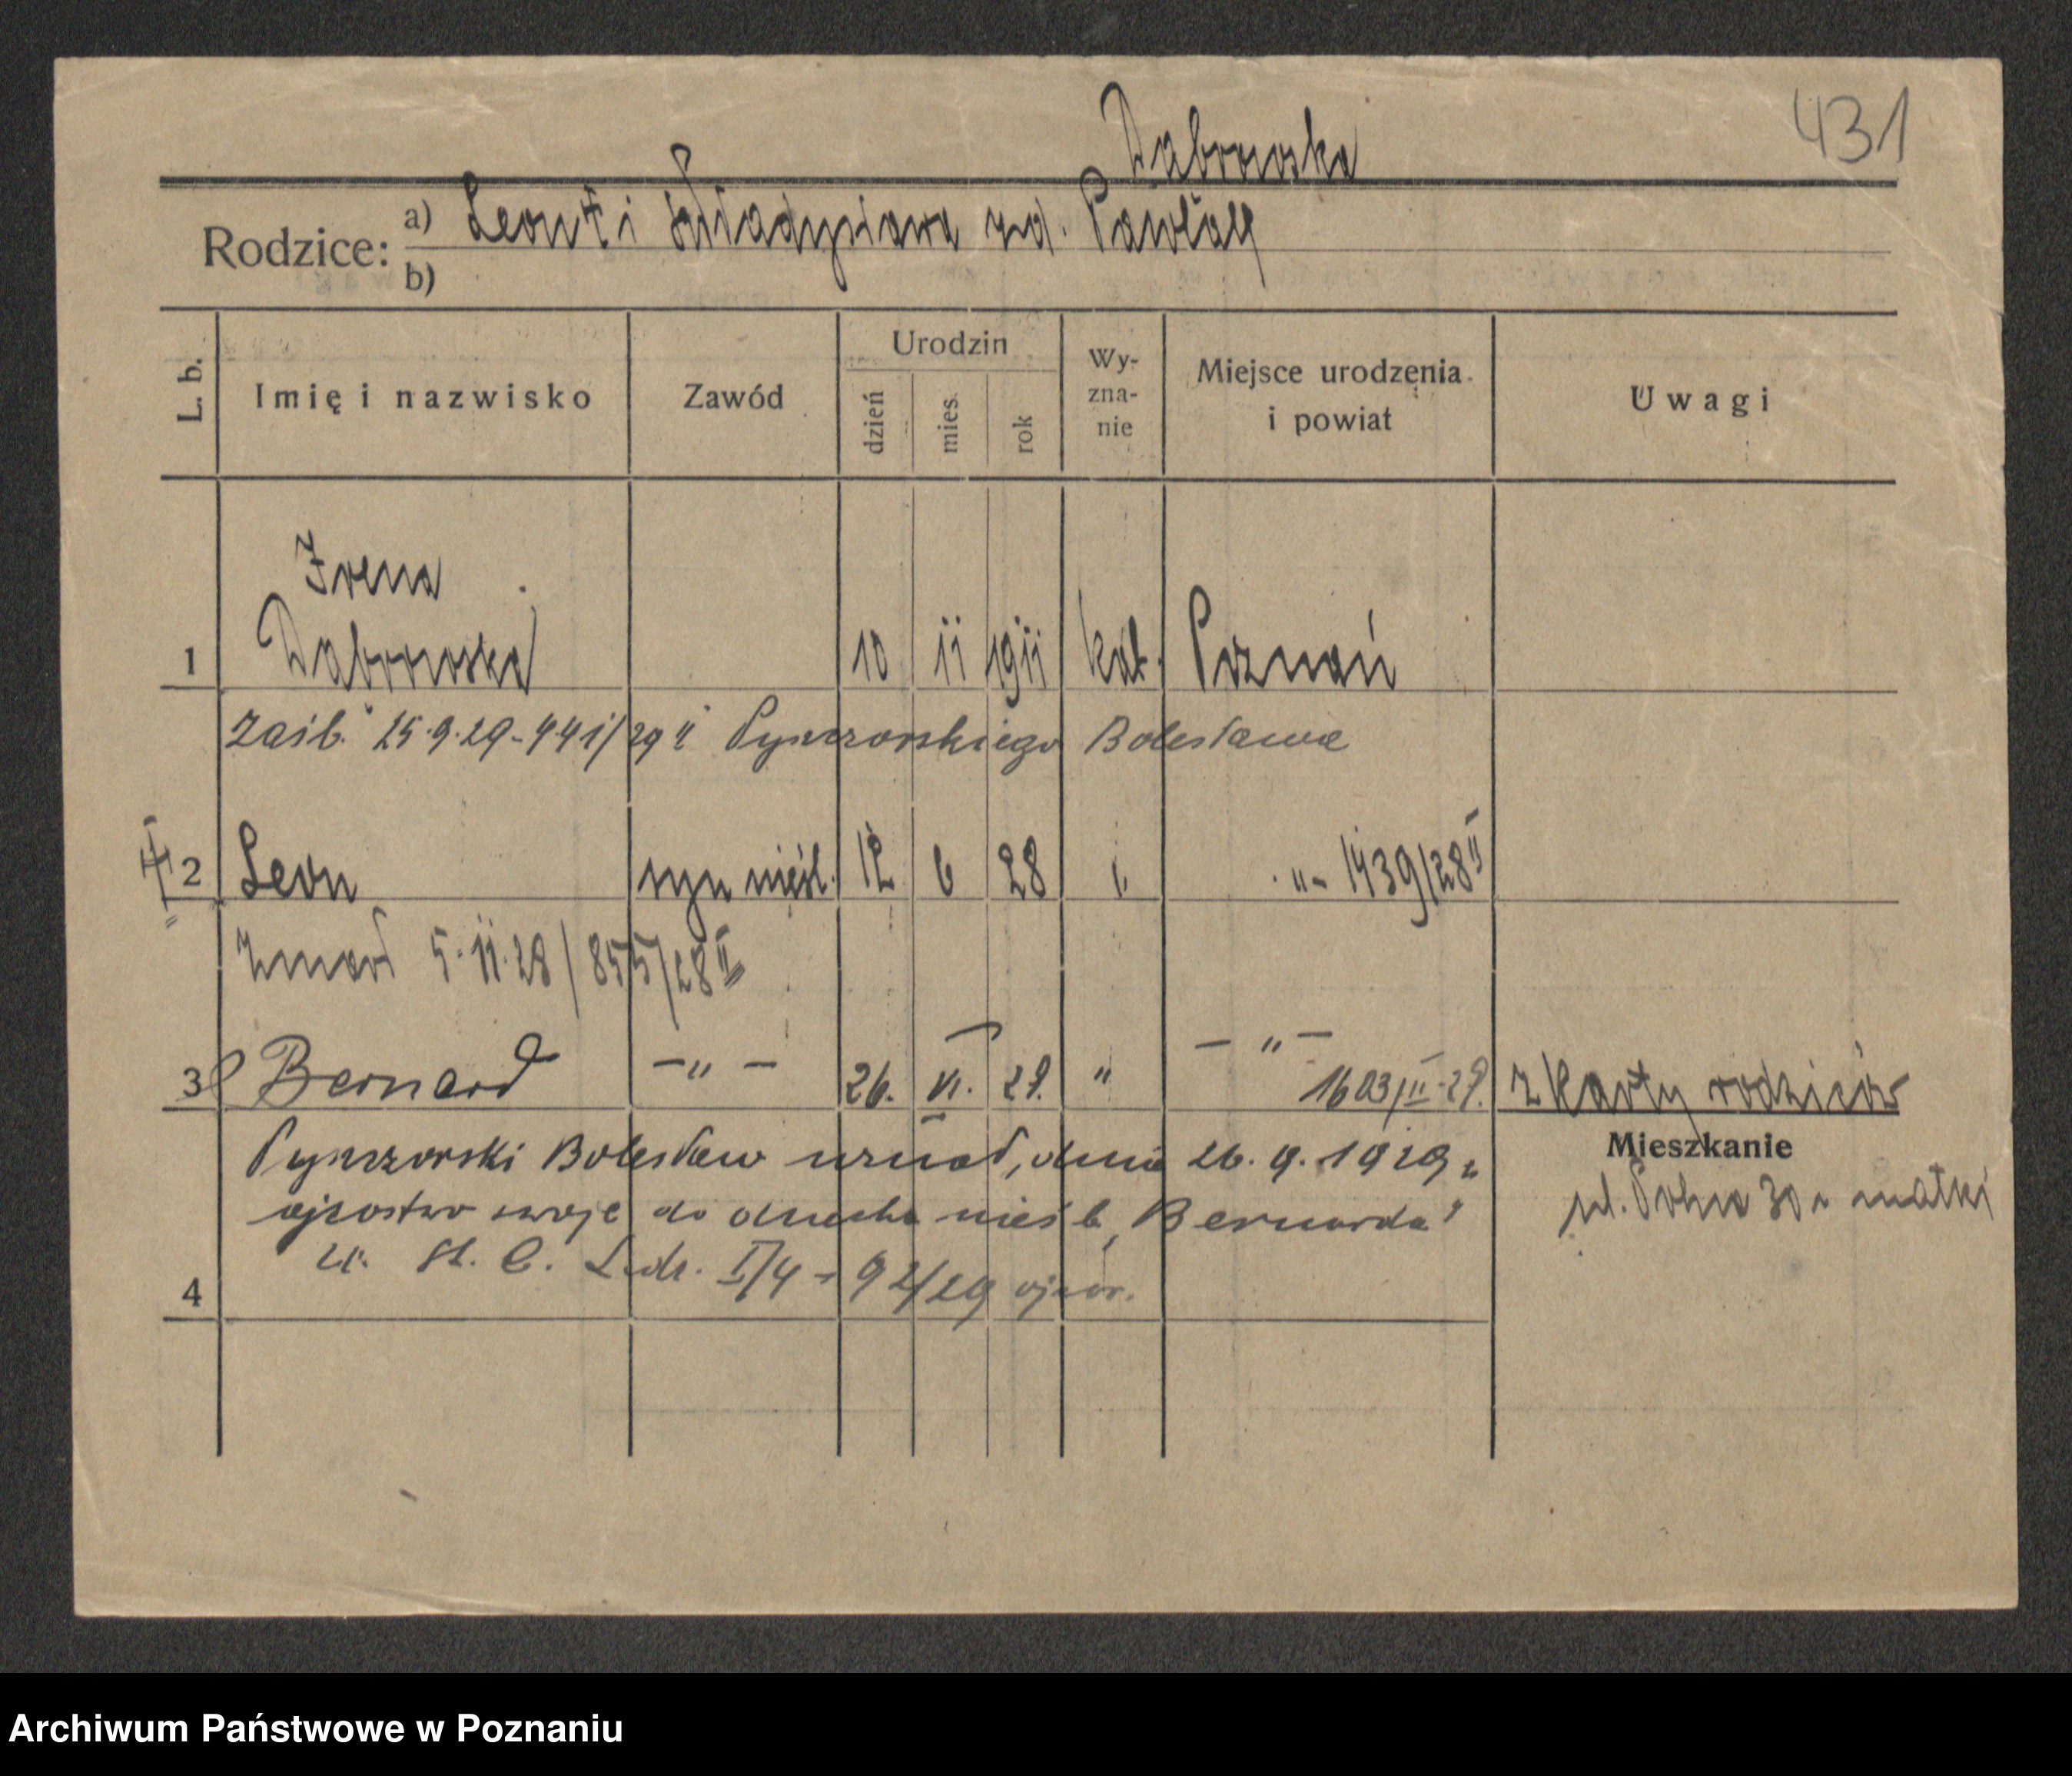 Dąbrowska
431
Rodzice: a) Leon † i Władysława zd. Pawlak
b)
L. b.
Imię i nazwisko
Zawód
Urodzin
dzień
mies.
rok
Wy-
zna-
nie
Miejsce urodzenia
i powiat
Uwagi
Irena
1 Dąbrowska 10 11 1911 kat. Poznań
zaśb. 25.9.29 - 441/29 II Pyszzorskiego Bolesława
2 Leon syn nieśl. 12 6 28 " -"- 1439/28 II
Zmarł 5.11.28/855/28 II
3 Bernard -"- 26. VI. 29. " -"- 1603/II-29. z karty rodziców
Pyszzorski Bolesław uznał, dnia 26.9.1929 r.
Mieszkanie
ojcostwo swoje do dziecka nieśb. "Bernarda"
ul. Polna 30 u matki
U. St. C. L.dz. I/4 - 92/29 ojcos.
4
Archiwum Państwowe w Poznaniu